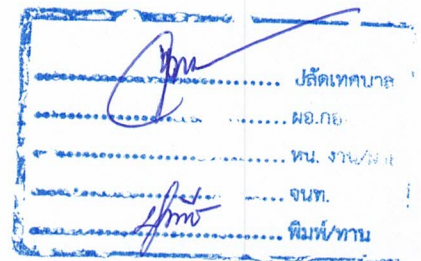 ปลัดเทศบาล
ผอ.กอ
หน. งาน/ฝ่าย
จนท.
พิมพ์/ทาน